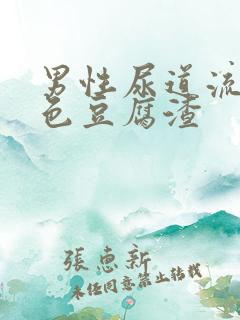 男性尿道流
色豆腐渣
張惠新
未经同意禁止转载